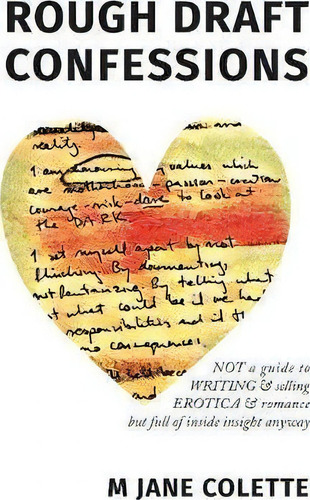 ROUGH DRAFT
CONFESSIONS
reality.
I am values which
are motherhood - passion - creation
courage - risk - dare to look at
the DARK
I set myself apart by not
flinching. By documenting,
not fantasizing. By telling what
what could be if we had
responsibilities and if
no consequences.
and
NOT a guide to
WRITING & selling
EROTICA & romance
but full of inside insight anyway
M JANE COLETTE